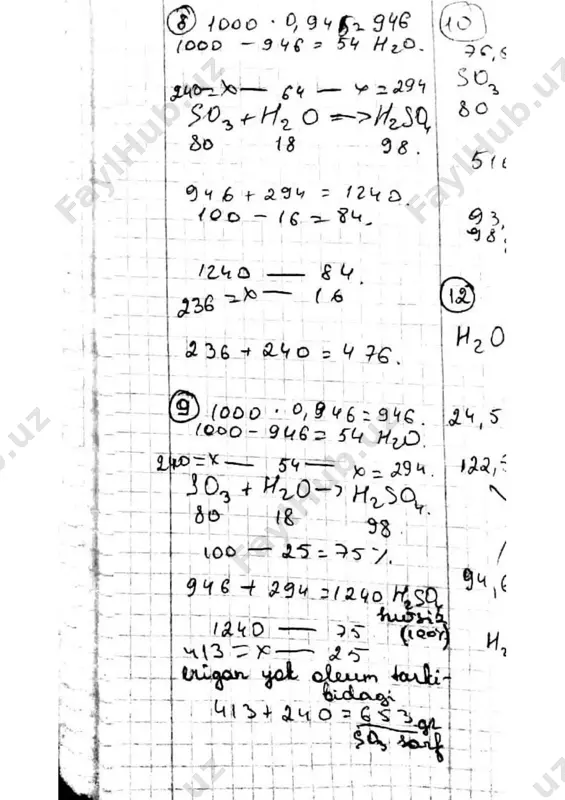 8 1000 · 0,946 = 946
1000 - 946 = 54 H2O.
240=x — 64 — x=294
SO3 + H2O => H2SO4
80 18 98.
946 + 294 = 1240.
100 - 16 = 84.
1240 — 84.
236 = x — 16
236 + 240 = 476.
9 1000 · 0,946 = 946.
1000 - 946 = 54 H2O.
240=x — 54 — x=294.
SO3 + H2O -> H2SO4.
80 18 98.
100 - 25 = 75%.
946 + 294 = 1240 H2SO4
(100%)
1240 — 75
413 = x — 25
erigan yok oleum tarki-
bidagi
413 + 240 = 653 gr
SO3 sarf
10
76,6
SO3
80
516
93,
98
12
H2O
24,5
122,
94,6
H2
FaylHub.uz
FaylHub.uz
FaylHub.uz
FaylHub.uz